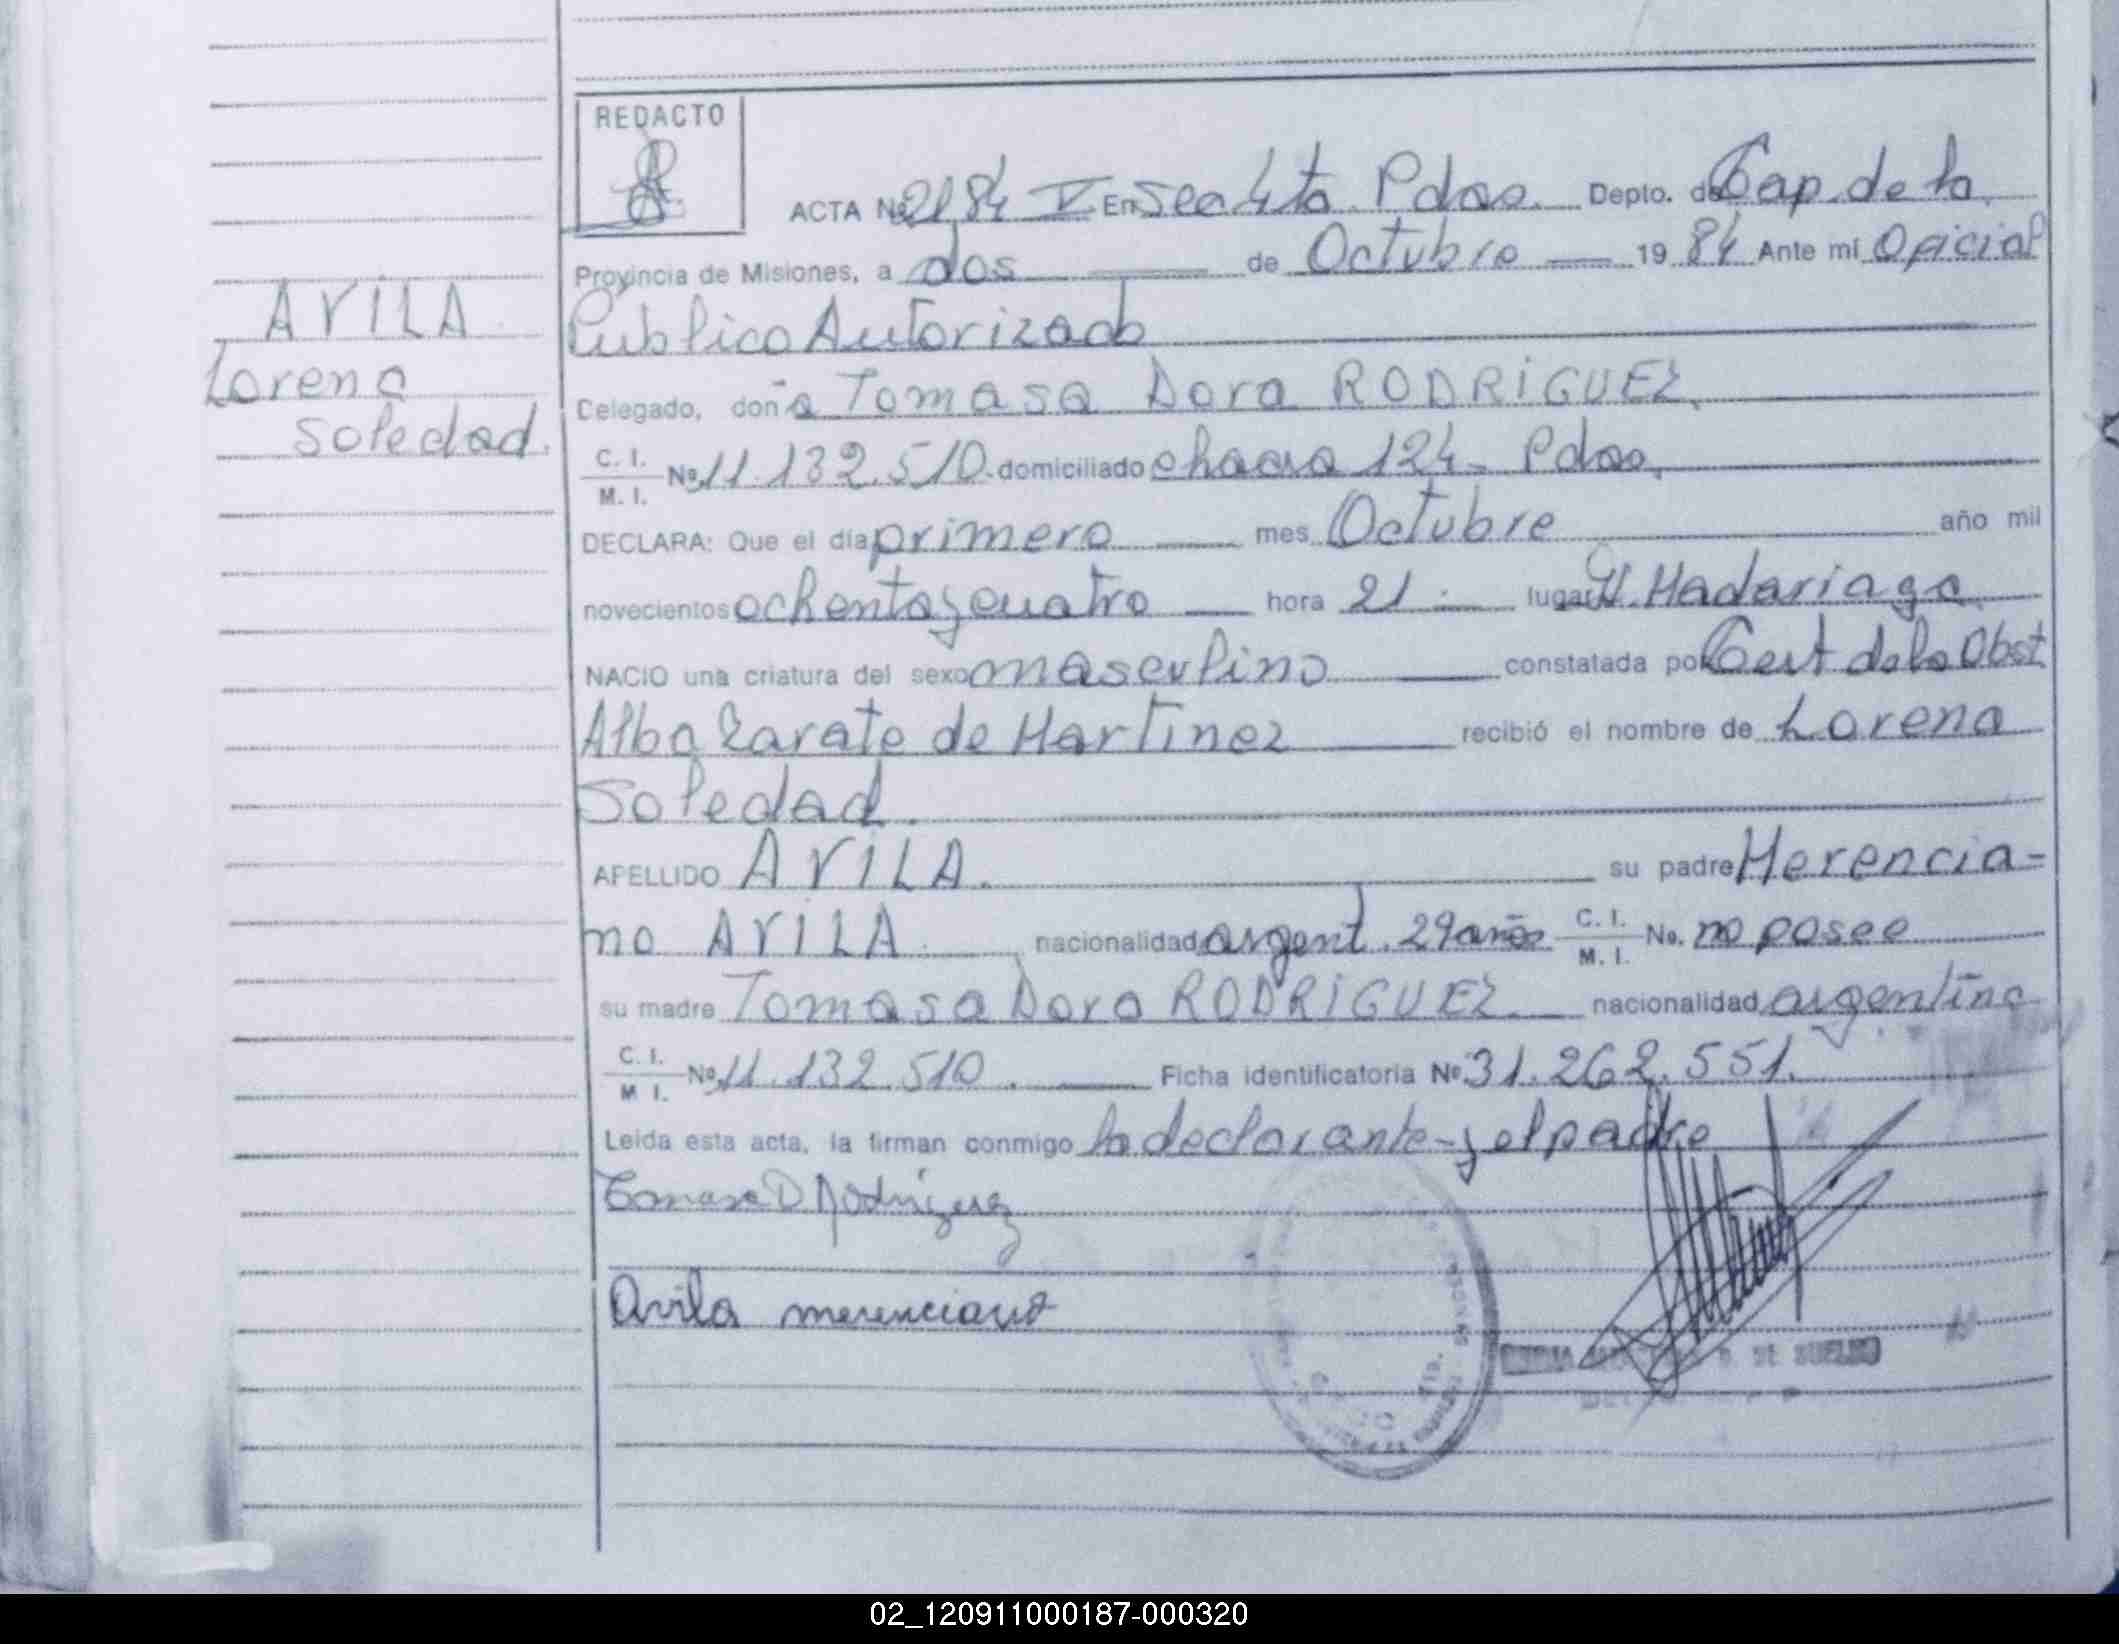 REDACTO
ACTA Nº 2184 V En Sec 4ta Pdas. Depto. de Cap. de la
Provincia de Misiones, a dos de Octubre 1984 Ante mí Oficial
Publico Autorizado
AVILA
Celegado, doña Tomasa Dora RODRIGUEZ.
Lorena
Soledad.
C. I.
M. I. Nº 11.132.510. domiciliado chacra 124 - Pdas.
DECLARA: Que el día primero mes Octubre año mil
novecientos ochenta y cuatro hora 21. lugar H. Madariaga.
NACIO una criatura del sexo masculino constatada por Cert de la Obst
Alba Zarate de Martinez recibió el nombre de Lorena
Soledad.
APELLIDO AVILA. su padre Merencia=
no AVILA. nacionalidad argent. 29 años C. I.
M. I. No. no posee
su madre Tomasa Dora RODRIGUEZ nacionalidad argentina
C. I.
M I. Nº 11.132.510. Ficha identificatoria Nº 31.262.551.
Leída esta acta, la firman conmigo la declarante y el padre
Tomasa D Rodriguez
Avila merenciano
DE SUELDO
02_120911000187-000320